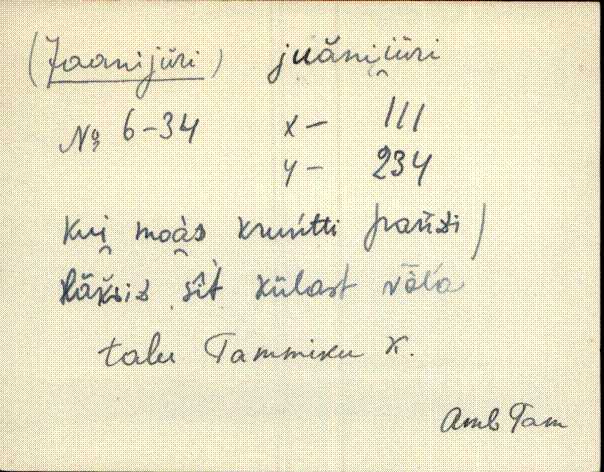 (Jaanijüri) juănijüri
№ 6-34 x – 111
y – 234
kui moas kruńtti pańdi /
läksid sìt külast väľľa
talu Tammiku k.
Amb Tam